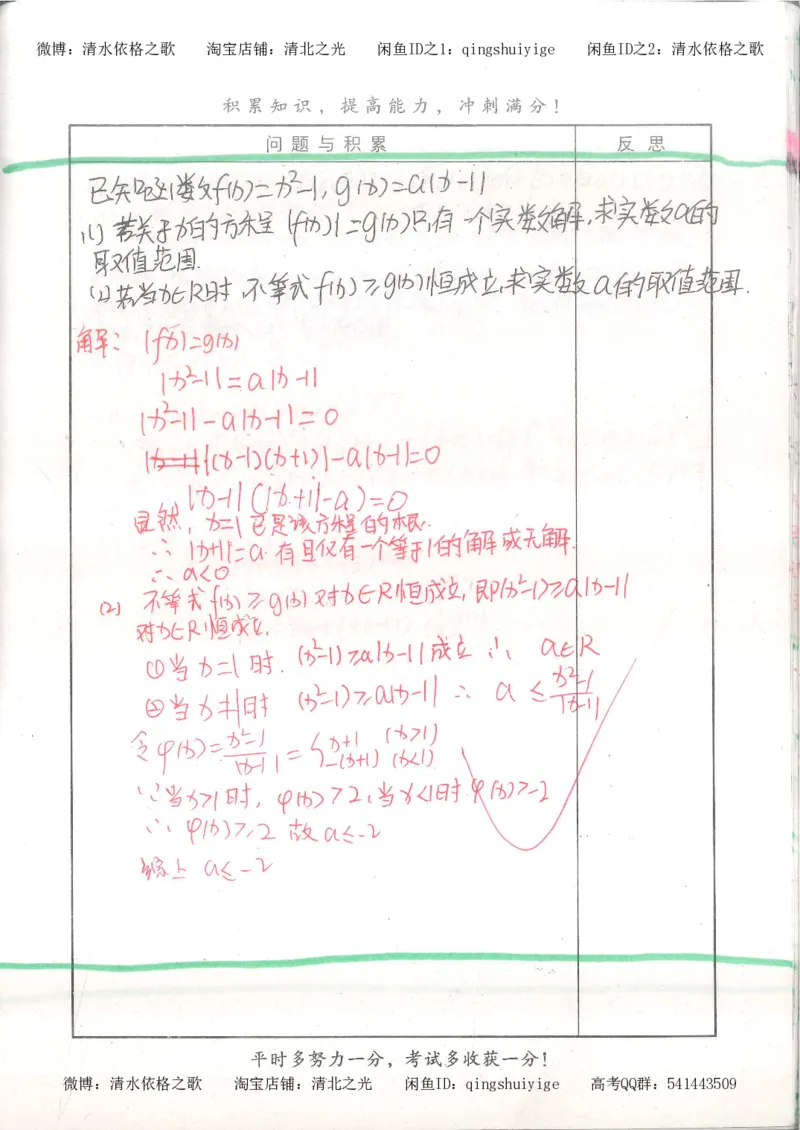 微博：清水依格之歌 淘宝店铺：清北之光 闲鱼ID之1：qingshuiyige 闲鱼ID之2：清水依格之歌
积累知识，提高能力，冲刺满分！
问题与积累 反思
已知函数f(x)=x²-1, g(x)=a|x-1|
(1) 若关于x的方程 |f(x)|=g(x)只有一个实数解,求实数a的
取值范围.
(2)若当x∈R时,不等式f(x)≥g(x)恒成立,求实数a的取值范围.
解: |f(x)|=g(x)
|x²-1|=a|x-1|
|x²-1|-a|x-1|=0
|(x-1)(x+1)|-a|x-1|=0
|x-1|(|x+1|-a)=0
显然, x=1已是该方程的根.
∴ |x+1|=a 有且仅有一个等于1的解或无解.
∴ a<0
(2) 不等式f(x)≥g(x)对x∈R恒成立,即(x²-1)≥a|x-1|
对x∈R恒成立.
①当x=1时. (x²-1)≥a|x-1|成立 ∴ a∈R
②当x≠1时 (x²-1)≥a|x-1| ∴ a≤(x²-1)/|x-1|
令φ(x)=(x²-1)/|x-1|={x+1 (x>1) -(x+1) (x<1)
∵当x>1时, φ(x)>2,当x<1时φ(x)>-2
∴ φ(x)>-2 故a≤-2
综上 a≤-2
平时多努力一分，考试多收获一分！
微博：清水依格之歌 淘宝店铺：清北之光 闲鱼ID：qingshuiyige 高考QQ群：541443509